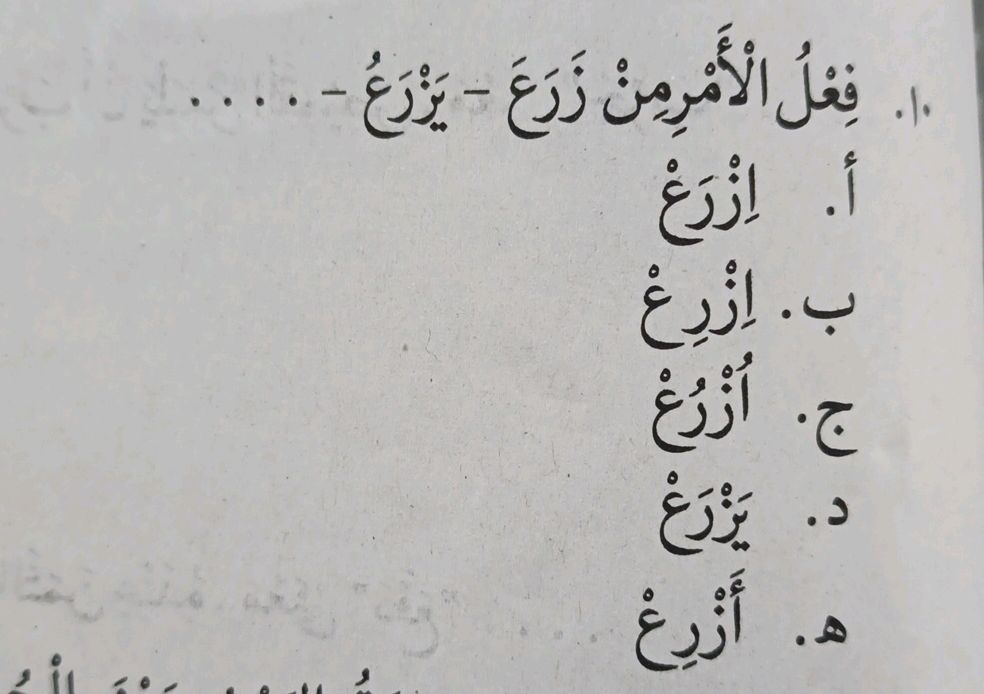 ١٠. فِعْلُ الْأَمْرِ مِنْ زَرَعَ – يَزْرَعُ – . . . .
أ. اِزْرَعْ
ب. اِزْرِعْ
ج. اُزْرُعْ
د. يَزْرَعْ
ه. أَزْرِعْ